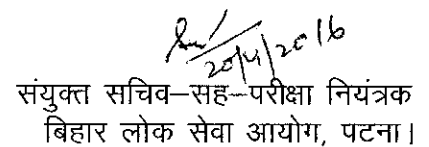 20/4/2016
संयुक्त सचिव–सह–परीक्षा नियंत्रक
बिहार लोक सेवा आयोग, पटना।